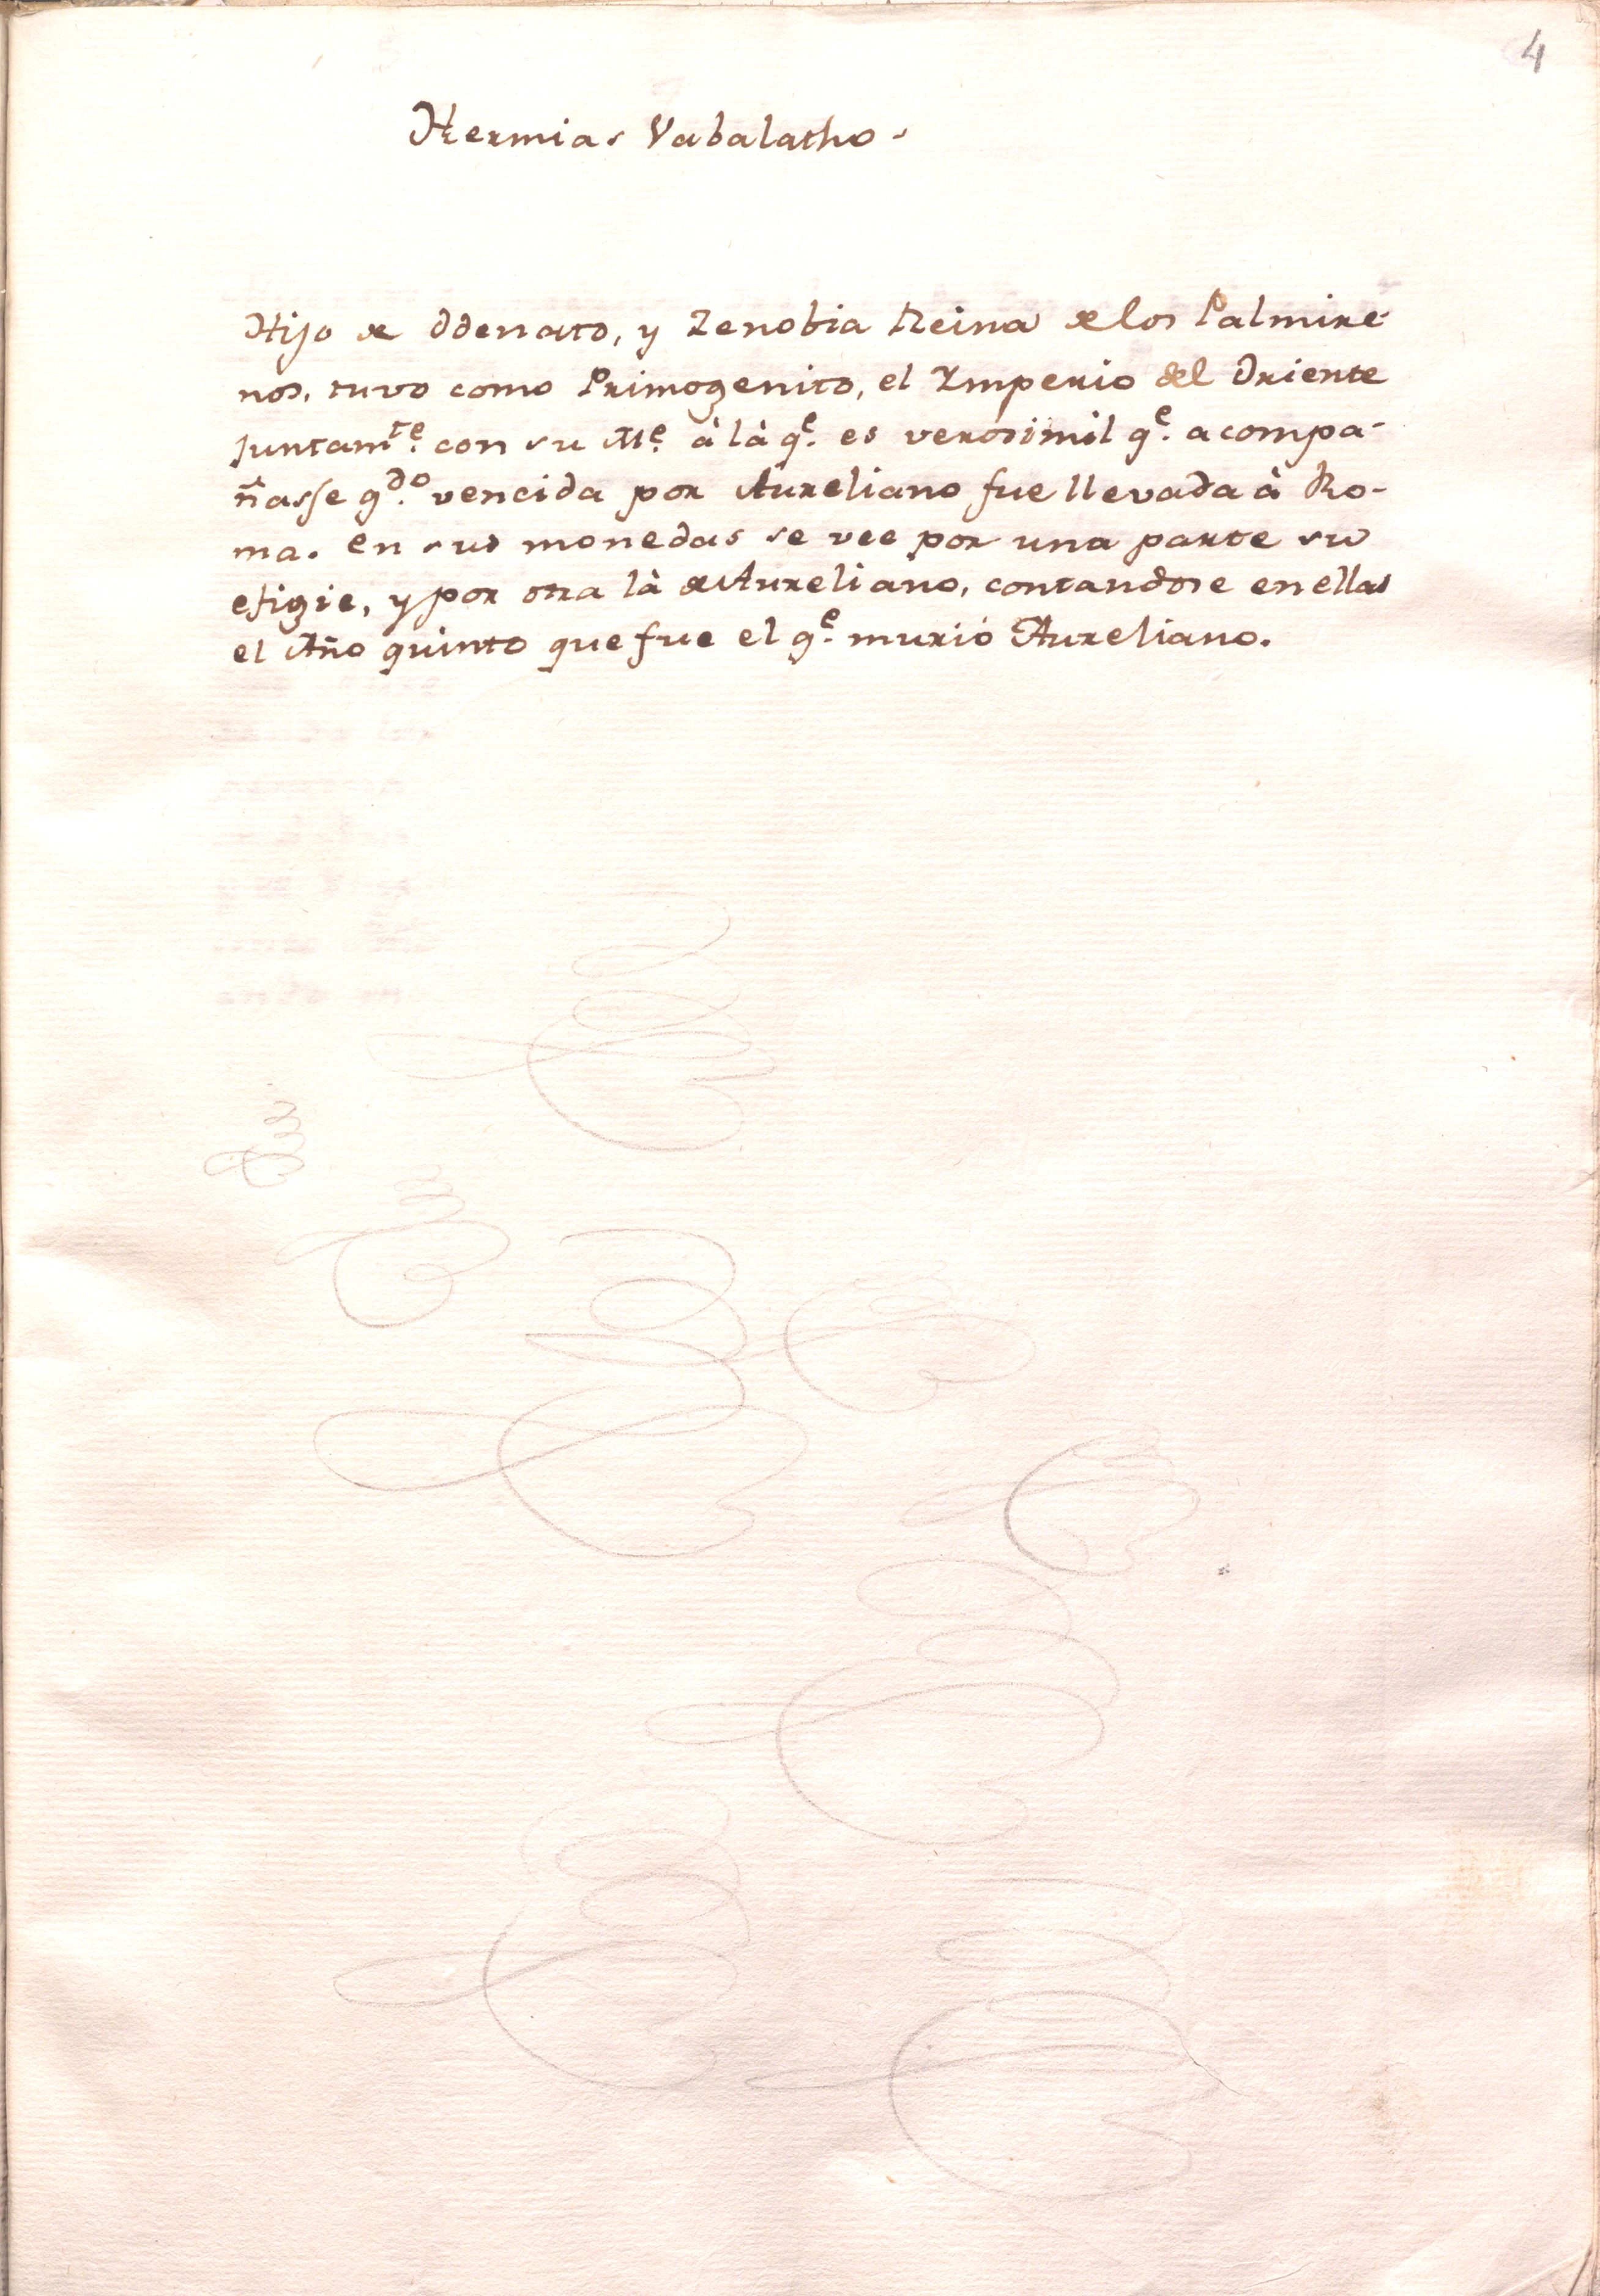 4
Hermias Vabalatho.
Hijo de Odenato, y Zenobia Reina de los Palmire-
nos, tuvo como Primogenito, el Imperio del Oriente
juntamᵗᵉ. con su Mᵉ. à là qᵉ. es verosimil qᵉ. acompa-
ñasse qᵈᵒ. vencida por Aureliano fue llevada à Ro-
ma. en sus monedas se vee por una parte su
efigie, y por otra là de Aureliano, contandose en ellas
el Año quinto que fue el qᵉ. murió Aureliano.